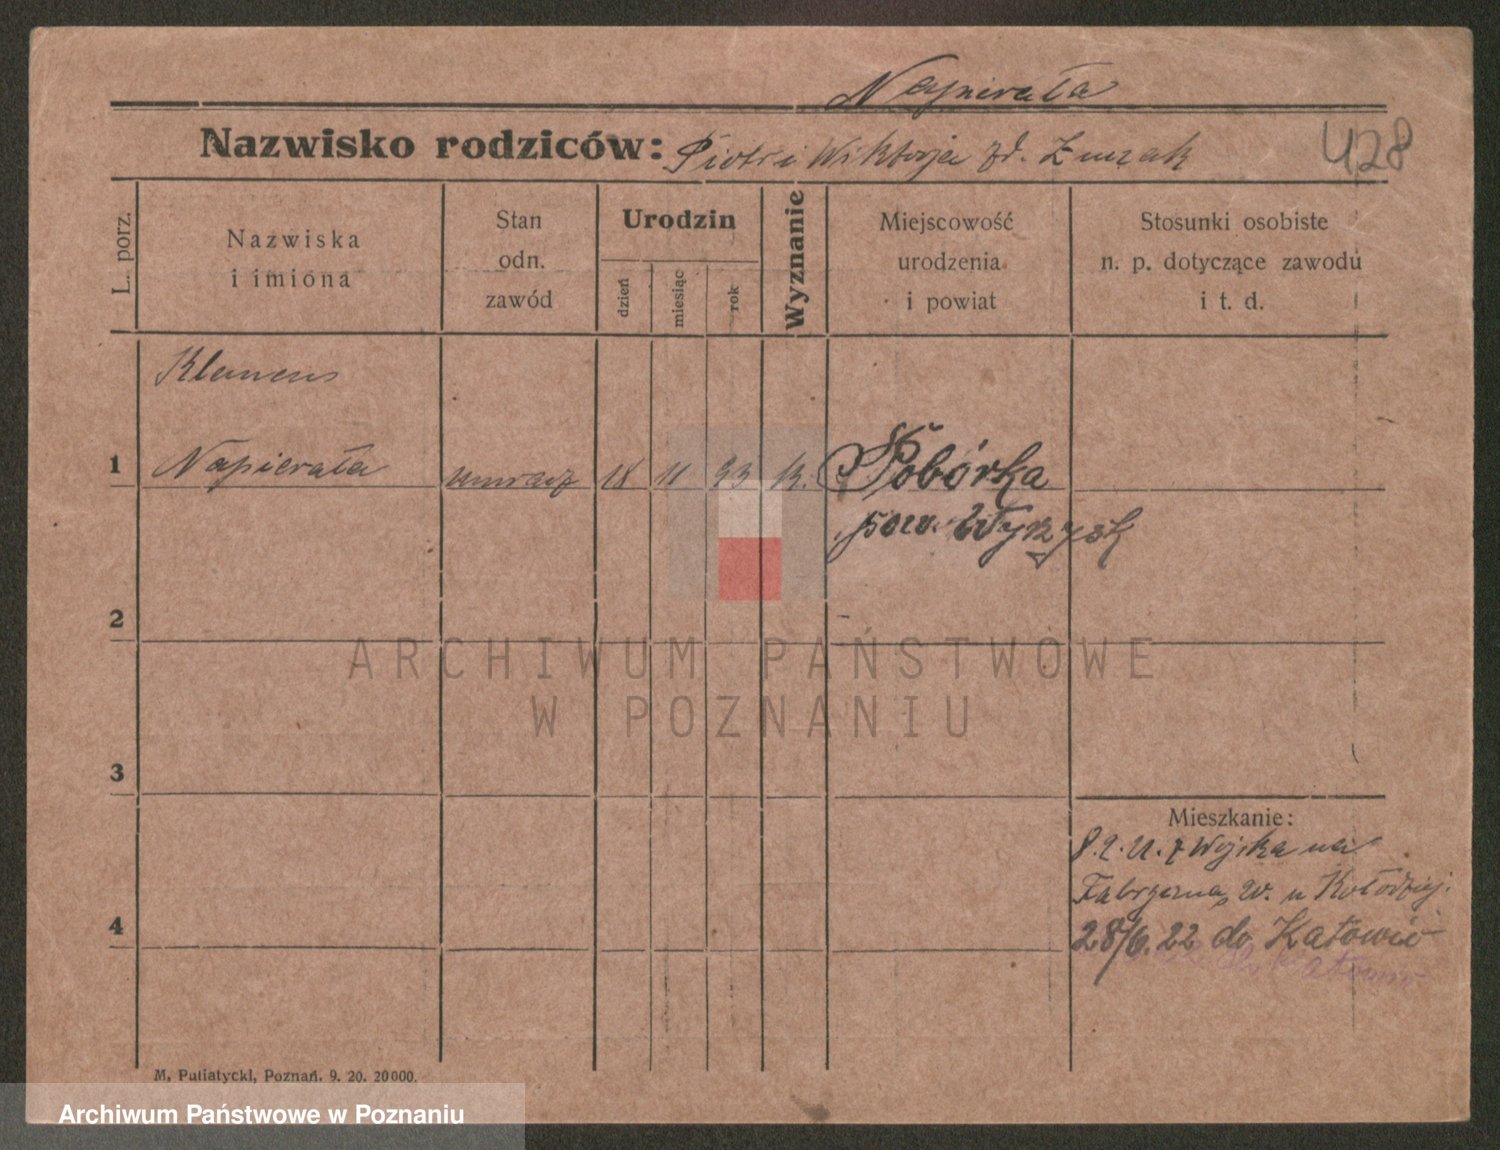 Napierała
Nazwisko rodziców: Piotr i Wiktorja zd. Żurak
428
L. porz.
Nazwiska
i imiona
Stan
odn.
zawód
Urodzin
dzień
miesiąc
rok
Wyznanie
Miejscowość
urodzenia
i powiat
Stosunki osobiste
n. p. dotyczące zawodu
i t. d.
Klemens
1 Napierała 18 11 93 k. Pobórka
pow. Wyrzysk
2
ARCHIWUM PAŃSTWOWE
W POZNANIU
3
Mieszkanie:
z Wojska na
w. u Kołodziej.
4
28/6.22 do Katowic
M. Putiatycki, Poznań. 9. 20. 20000.
Archiwum Państwowe w Poznaniu